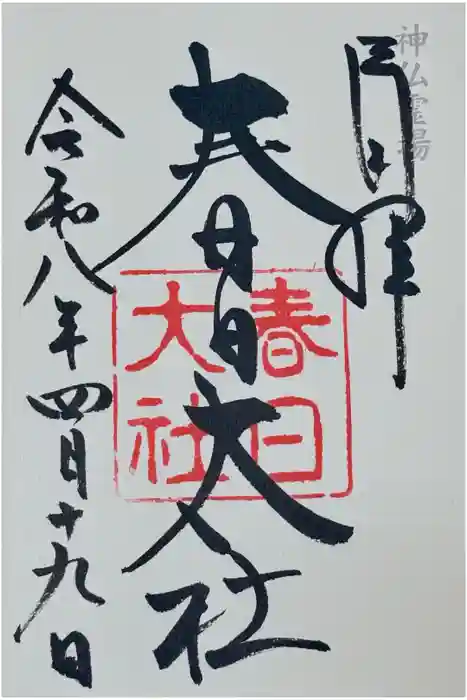 神仏霊場
奉拝
春日大社
春日
大社
令和八年四月十九日